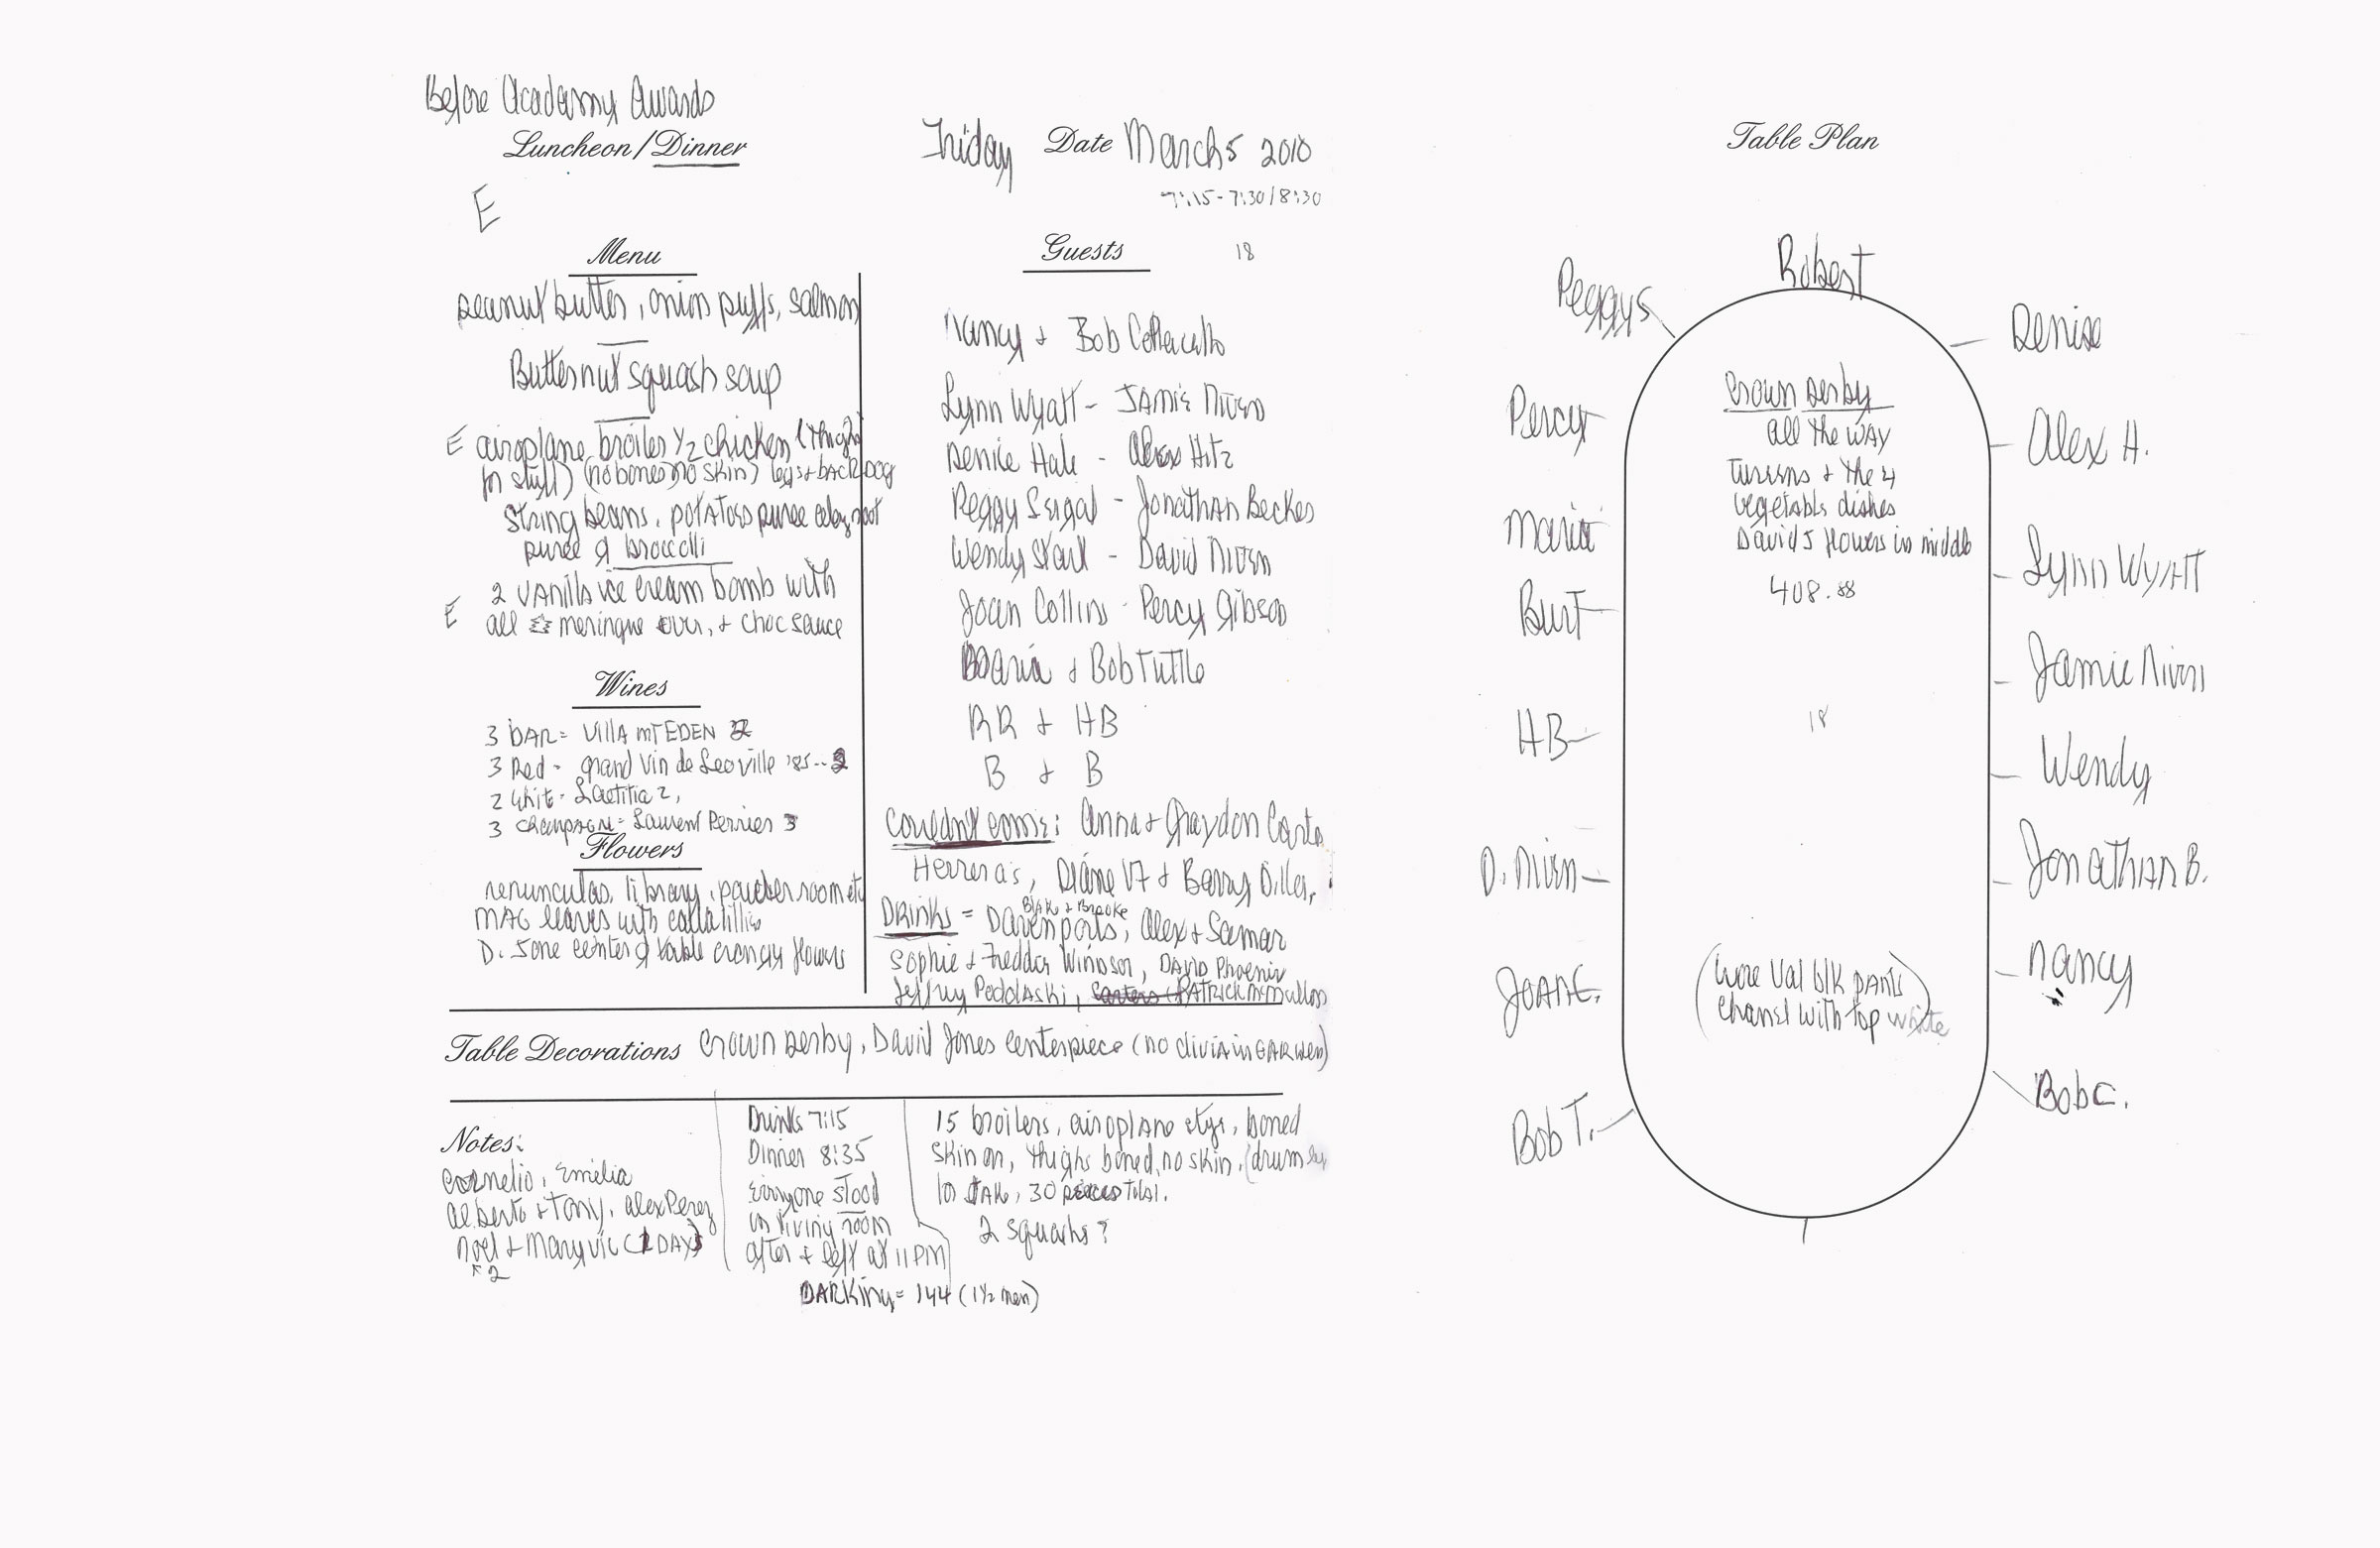 Before Academy Awards
Luncheon/Dinner
Friday Date March 5 2010
7:15-7:30/8:30
E
Menu
peanut butter, onion puffs, salmon
Butternut squash soup
E airoplane broiler 1/2 chicken (thighs
for stuff) (no bones no skin) legs + back DOG
String beans, potatoes puree celery root
puree of broccolli
2 vanilla ice cream bomb with
E all meringue over, + choc sauce
Wines
3 bar = Villa MT EDEN 2
3 Red - grand Vin de Leoville '85 -- 2
2 white - Laetitia 2,
3 champagne = Laurent Perrier 3
Flowers
renunculas, library, powder room etc
MAG leaves with calla lillies
D. Jone center of table
flowers
Guests 18
Nancy + Bob
Lynn Wyatt - Jamie Niven
Denise Hale - Alex Hitz
Peggy Seigal - Jonathan Becker
Wendy Stark - David Niven
Joan Collins - Percy Gibson
Maria + Bob Tuttle
RR + HB
B + B
Couldn't come: Anna + Graydon Carter
Herrera's, Diane VF + Barry Diller,
Blake + Brooke
DRINKS = Davenports, Alex + Samar
Sophie + Freddy Windsor, David Phoenix
Jeffrey Podolaski, Carters Patrick McMullan
Table Decorations Crown Derby, David Jones centerpiece (no clivia in GARDEN)
Notes:
Cornelio, Emelia
Alberto + Tony, Alex Perez
Noel + Maryvic (1 DAY)
2
Drinks 7:15
Dinner 8:35
Everyone stood
in living room
after + left at 11 PM
PARKing = 144 (1 1/2 men)
15 broilers, airoplane style, boned
skin on, thighs boned, no skin, (drum
30 pieces total.
2 squashs?
Table Plan
Robert
Peggy S
Percy
Maria
Burt
HB
D. Niven
Joan C.
Bob T.
Denise
Alex H.
Lynn Wyatt
Jamie Niven
Wendy
Jonathan B.
Nancy
Bob C.
Crown Derby
all the way
Tureens + the 4
vegetable dishes
David J flowers in middle
408.88
18
(wore Val blk pants)
chanel with top white